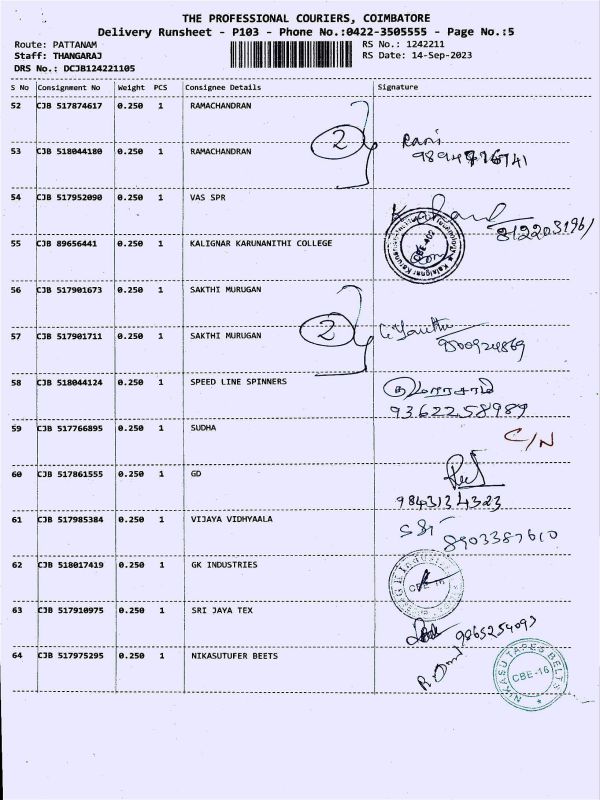 THE PROFESSIONAL COURIERS, COIMBATORE
Delivery Runsheet - P103 - Phone No.:0422-3505555 - Page No.:5
Route: PATTANAM RS No.: 1242211
Staff: THANGARAJ RS Date: 14-Sep-2023
DRS No.: DCJB124221105
S No Consignment No Weight PCS Consignee Details Signature
52 CJB 517874617 0.250 1 RAMACHANDRAN
2 Rani
53 CJB 518044180 0.250 1 RAMACHANDRAN
54 CJB 517952090 0.250 1 VAS SPR
8122031961
55 CJB 89656441 0.250 1 KALIGNAR KARUNANITHI COLLEGE
CBE-402
56 CJB 517901673 0.250 1 SAKTHI MURUGAN
2
57 CJB 517901711 0.250 1 SAKTHI MURUGAN
9500924869
58 CJB 518044124 0.250 1 SPEED LINE SPINNERS
93622 58989
59 CJB 517766895 0.250 1 SUDHA
C/N
60 CJB 517861555 0.250 1 GD
9843134323
61 CJB 517985384 0.250 1 VIJAYA VIDHYAALA
8903387610
62 CJB 518017419 0.250 1 GK INDUSTRIES
63 CJB 517910975 0.250 1 SRI JAYA TEX
9865254093
64 CJB 517975295 0.250 1 NIKASUTUFER BEETS
NIKASU TAPES BELTS
CBE-16